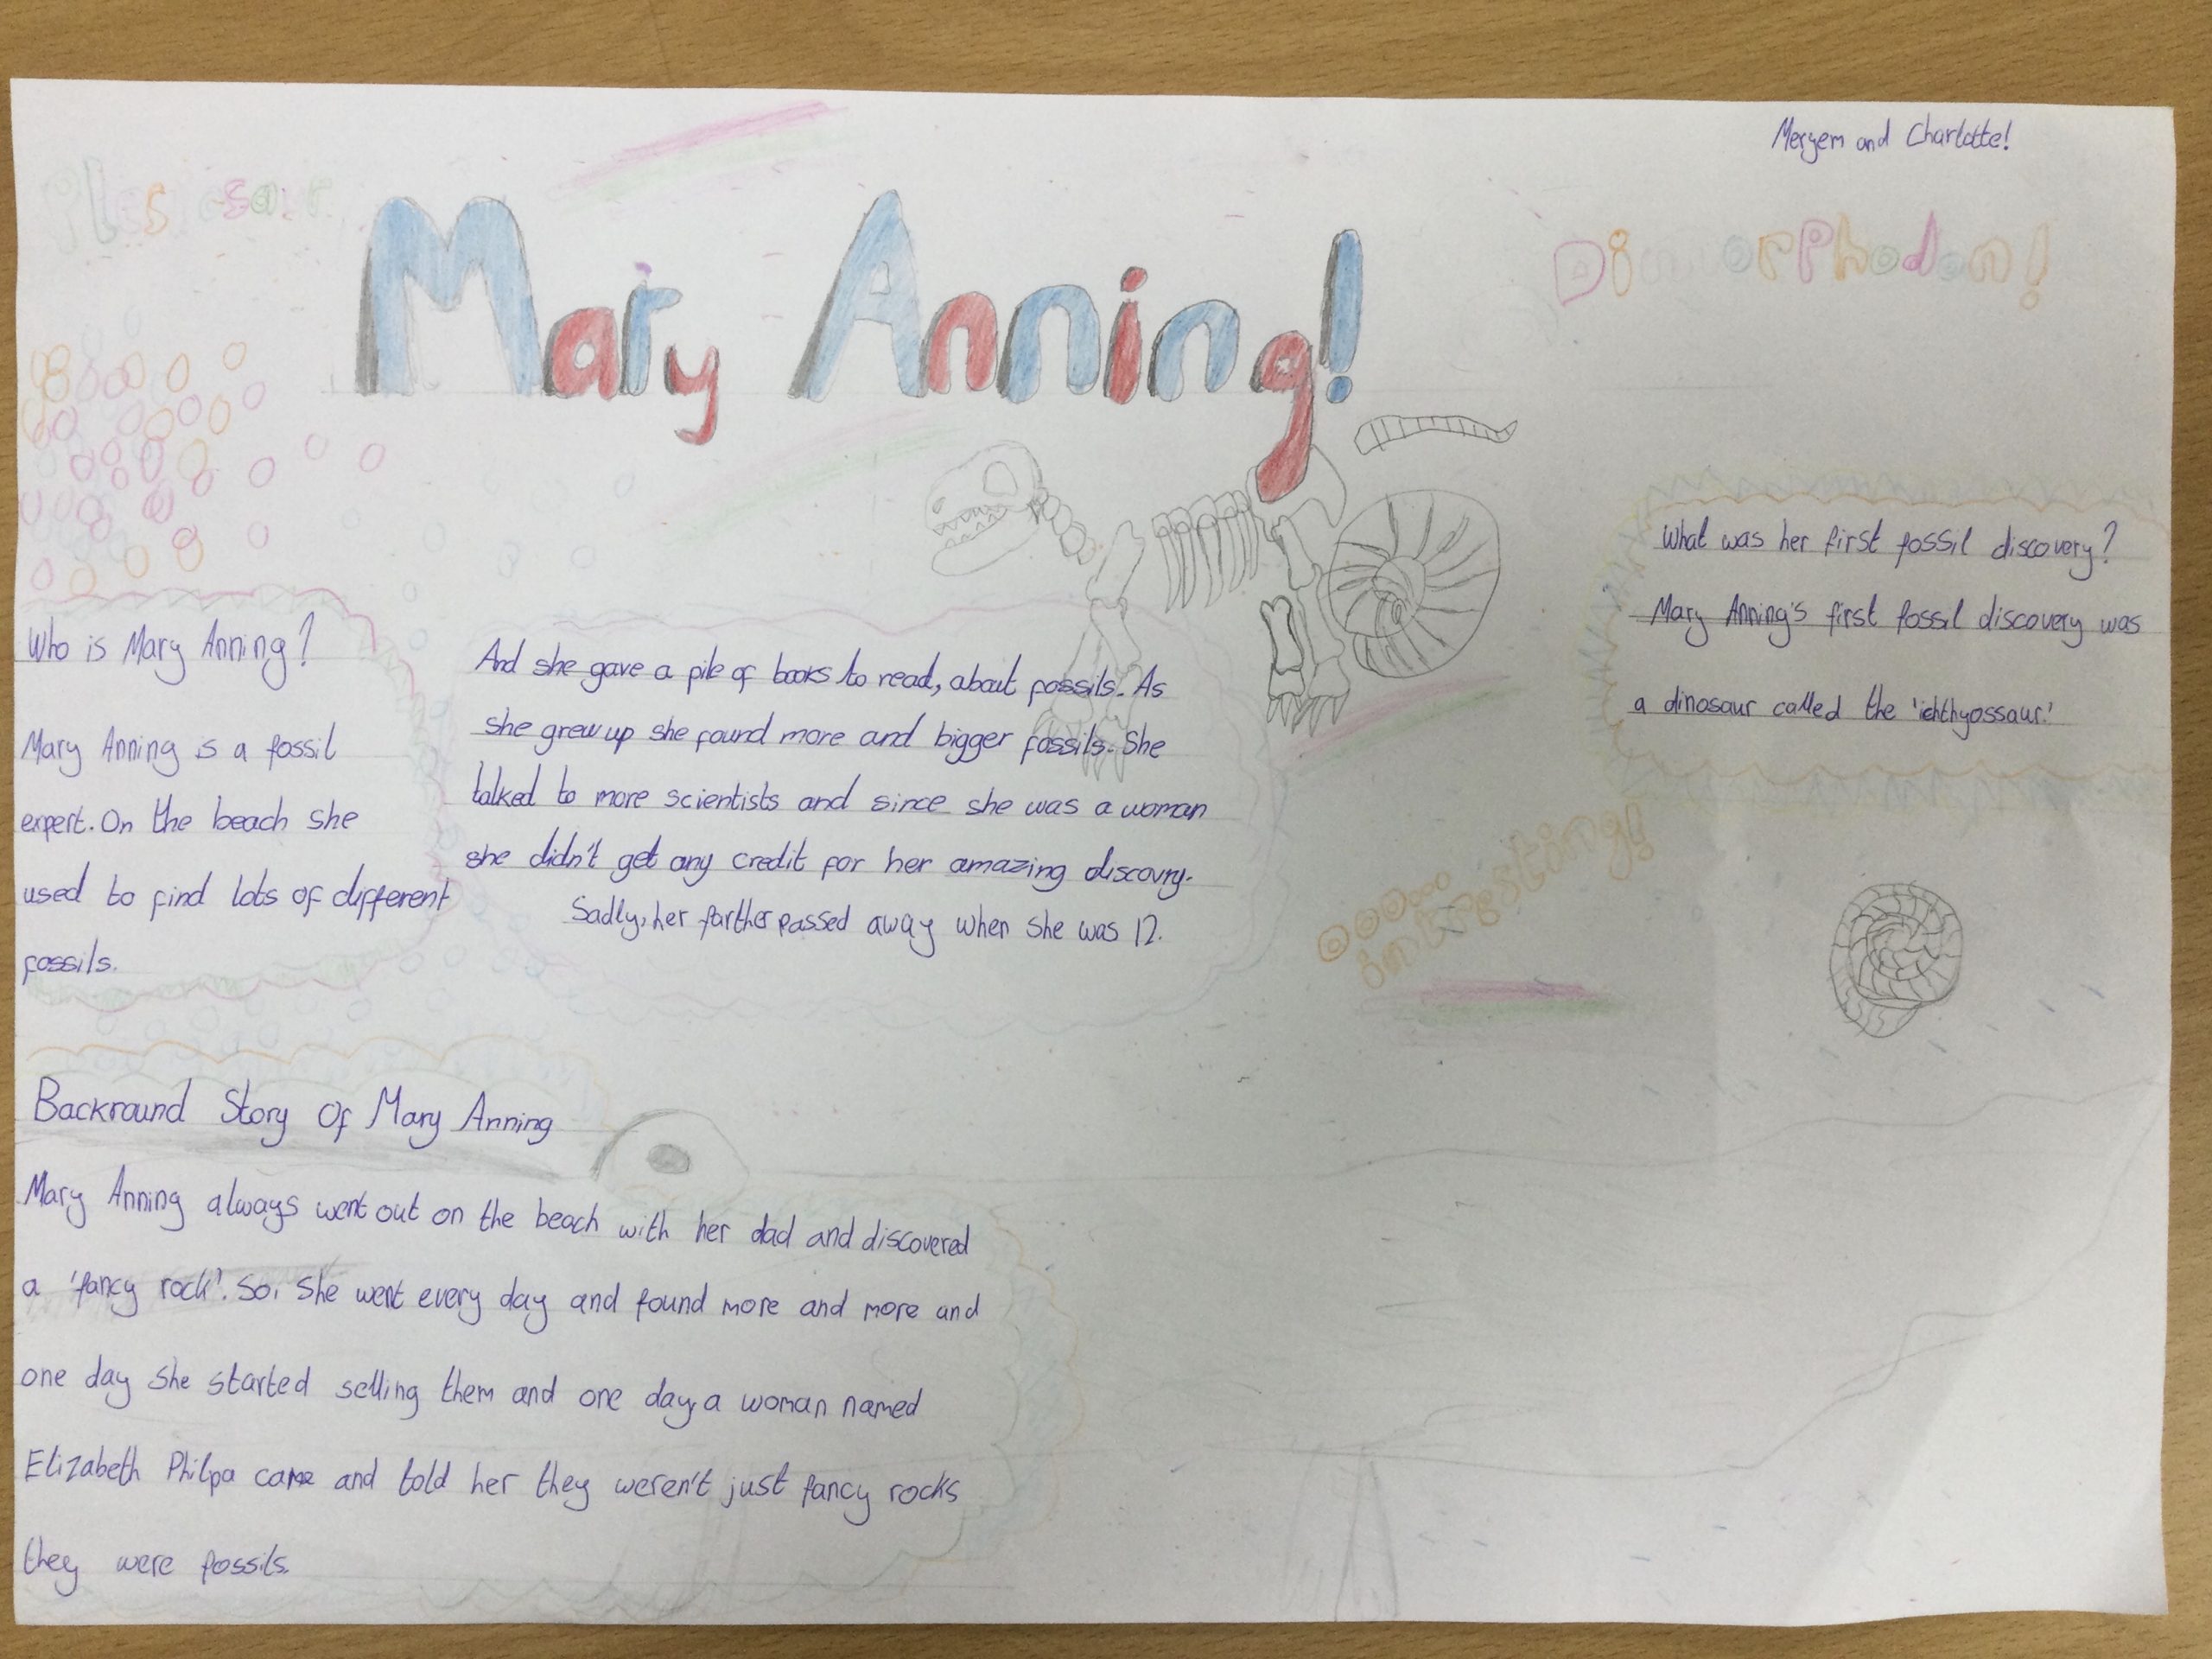 Meryem and Charlotte!
Plesiosaur
Mary Anning!
Dimorphodon!
Who is Mary Anning?
Mary Anning is a fossil
expert. On the beach she
used to find lots of different
fossils.
And she gave a pile of books to read, about fossils. As
she grew up she found more and bigger fossils. She
talked to more scientists and since she was a woman
she didn't get any credit for her amazing discovry.
Sadly, her farther passed away when she was 12.
What was her first fossil discovery?
Mary Anning's first fossil discovery was
a dinosaur called the 'ichthyossaur.'
OOOO...
intresting!
Backround Story Of Mary Anning
Mary Anning always went out on the beach with her dad and discovered
a 'fancy rock'. So, she went every day and found more and more and
one day she started selling them and one day, a woman named
Elizabeth Philpa came and told her they weren't just fancy rocks
they were fossils.